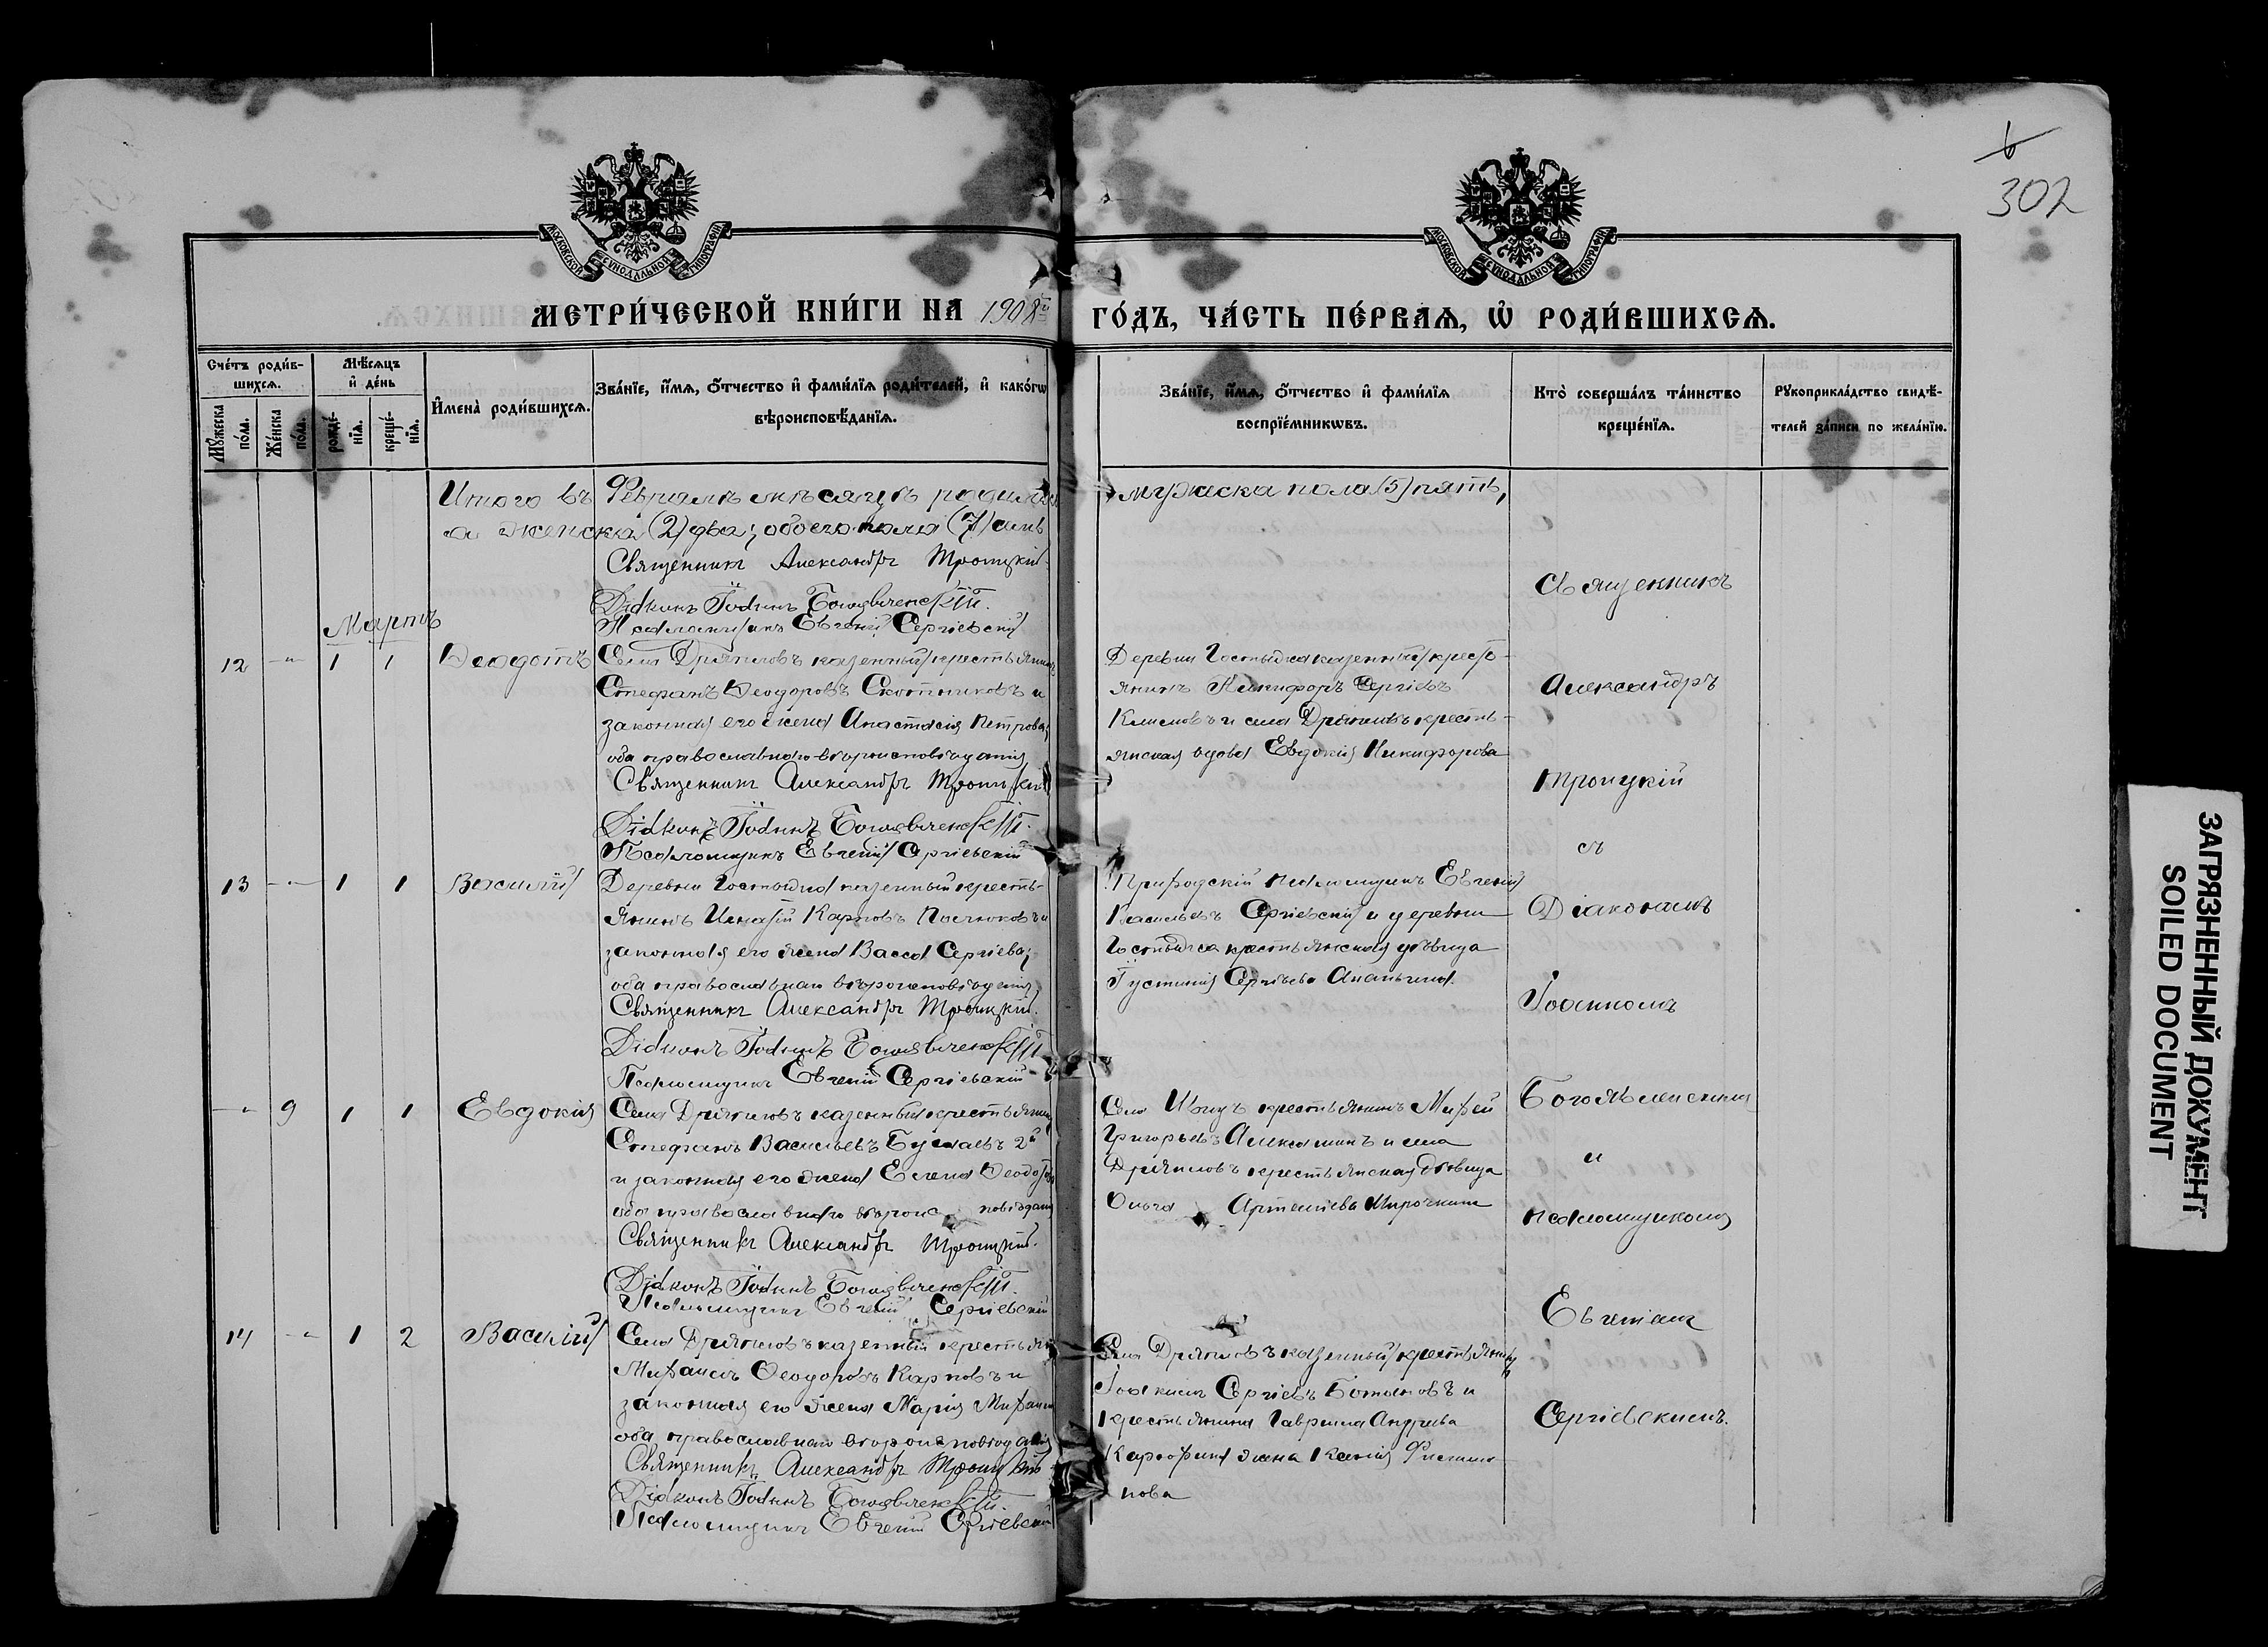 302
МОСКОВСКОЙ СѴНОДАЛЬНОЙ ТИПОГРАФІИ
МОСКОВСКОЙ СѴНОДАЛЬНОЙ ТИПОГРАФІИ
МЕТРИ́ЧЕСКОЙ КНИ́ГИ НА 1908й ГО́ДЪ, ЧА́СТЬ ПЕ́РВАѦ, Ѡ҆ РОДИ́ВШИХСѦ.
Сче́тъ роди́в-
шихсѧ.
Мꙋ́жеска
по́ла.
Же́нска
по́ла.
Мѣ́сѧцъ
и҆ де́нь
рожде́-
нїѧ.
креще́-
нїѧ.
И҆мена̀ роди́вшихсѧ.
Зва́нїе, и҆́мѧ, ѻ҆́тчество и҆ фами́лїѧ роди́телей, и҆ како́гѡ
вѣроисповѣ́данїѧ.
Зва́нїе, и҆́мѧ, ѻ҆́тчество и҆ фами́лїѧ
воспрїе́мникѡвъ.
Кто̀ соверша́лъ та́инство
креще́нїѧ.
Рꙋкоприкла́дство свидѣ́-
телей за́писи по жела́нїю.
Итого въ Февралѣ мѣсяцѣ родилось мужеска пола (5) пять,
а женска (2) два; обоего пола (7) семь
Священникъ Александръ Троицкій.
Діаконъ Іоаннъ Богоявленскій.
Псаломщикъ Евгеній Сергіевскій
Мартъ
12 - 1 1 Ѳеодотъ
Села Дряпиловъ казенный крестьянинъ
Стефанъ Ѳеодоровъ Скотниковъ и
законная его жена Анастасія Петрова;
оба православнаго вѣроисповѣданія
Священникъ Александръ Троицкій
Діаконъ Іоаннъ Богоявленскій.
Псаломщикъ Евгеній Сергіевскій
Деревни казенный кресть-
янинъ Никифоръ Сергіевъ
Климовъ и села кресть-
янская вдова Евдокія Никифорова
13 - 1 1 Василій
Деревни казенный кресть-
янинъ Карповъ и
законная его жена Васса Сергіева;
оба православнаго вѣроисповѣданія
Священникъ Александръ Троицкій.
Діаконъ Іоаннъ Богоявленскій
Псаломщикъ Евгеній Сергіевскій
Приходскій псаломщикъ Евгеній
Васильевъ Сергіевскій и деревни
крестьянская дѣвица
Іустинія Сергіева Ананьина.
- 9 1 1 Евдокія
Села Дряпиловъ казенный крестьянинъ
Стефанъ Васильевъ 2й
и законная его жена Елена
оба православнаго вѣроисповѣданія
Священникъ Александръ Троицкій.
Діаконъ Іоаннъ Богоявленскій.
Псаломщикъ Евгеній Сергіевскій
Села крестьянинъ
Григорьевъ и села
Дряпиловъ крестьянская дѣвица
Ольга
14 - 1 2 Василій
Села Дряпиловъ казенный крестьянинъ
Михаилъ Ѳеодоровъ Карповъ и
законная его жена Марія
оба православнаго вѣроисповѣданія
Священникъ Александръ Троицкій
Діаконъ Іоаннъ Богоявленскій.
Псаломщикъ Евгеній Сергіевскій
Села Дряпиловъ казенный крестьянинъ
Іоакимъ Сергіевъ и
крестьянина Гавріила Андреева
жена Ксенія Филип-
пова
Священникъ
Александръ
Троицкій
съ
Діакономъ
Іоанномъ
Богоявленскимъ
и
псаломщикомъ
Евгеніемъ
Сергіевскимъ.
ЗАГРЯЗНЕННЫЙ ДОКУМЕНТ
SOILED DOCUMENT